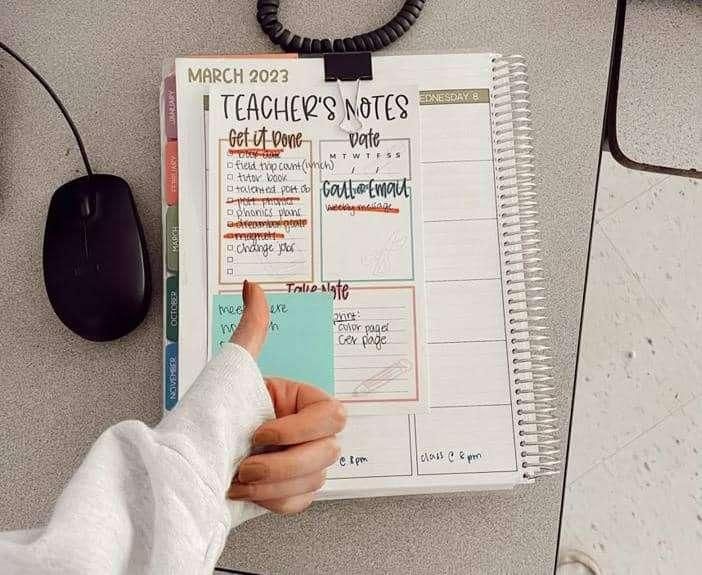 MARCH 2023
TEACHER'S NOTES
EDNESDAY 8
Get it Done
Date
M T W T F S S
field trip count (lunch)
tutor book
talented post ob
Call or Email
post phonics
weekly message
phonics plans
magnets
change jobs
Take Note
mee ere
print:
color pages
cer page
@ 8pm
class @ 8pm
JANUARY
FEBRUARY
MARCH
OCTOBER
NOVEMBER